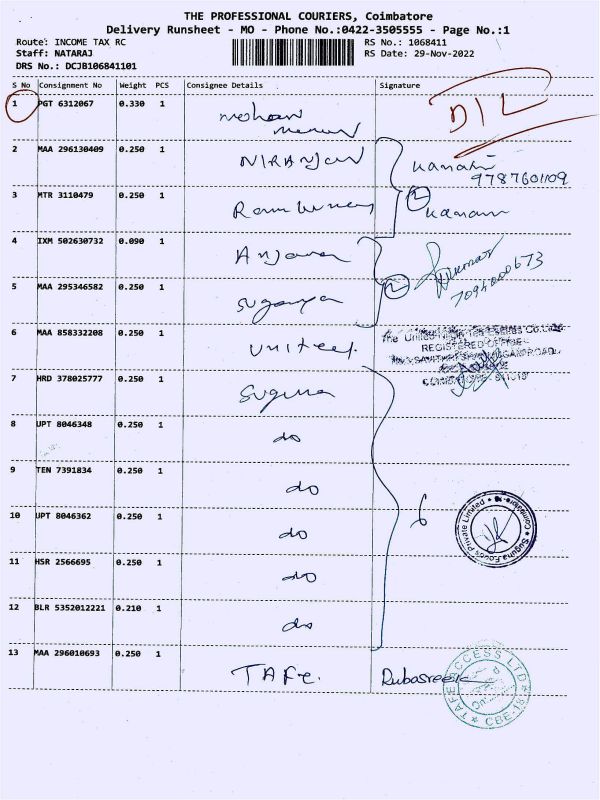 THE PROFESSIONAL COURIERS, Coimbatore
Delivery Runsheet - MO - Phone No.:0422-3505555 - Page No.:1
Route: INCOME TAX RC RS No.: 1068411
Staff: NATARAJ RS Date: 29-Nov-2022
DRS No.: DCJB106841101
S No Consignment No Weight PCS Consignee Details Signature
1 PGT 6312067 0.330 1 mohan
menon D/L
2 MAA 296130409 0.250 1 NIRANJAN
9787601109
3 MTR 3110479 0.250 1 2
4 IXM 502630732 0.090 1 Anjana Kumar
7094000673
5 MAA 295346582 0.250 1 Suganya 2
6 MAA 858332208 0.250 1 United The United Nilgiri Tea Estates Co. Ltd
REGISTERED OFFICE
7 HRD 378025777 0.250 1 Suguna
8 UPT 8046348 0.250 1 do
9 TEN 7391834 0.250 1 do
10 UPT 8046362 0.250 1 do 6 Suguna Foods Private Limited * Coimbatore
11 HSR 2566695 0.250 1 do
12 BLR 5352012221 0.210 1 do
13 MAA 296010693 0.250 1 TAFE. Rubasree TAFE ACCESS LTD * CBE-18 *